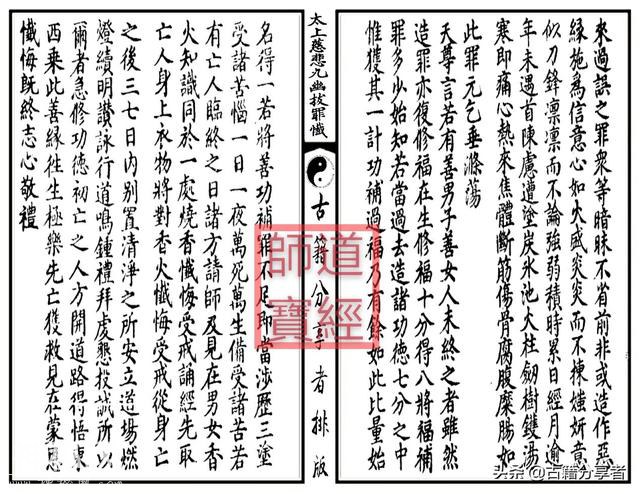 來過誤之罪衆等暗昧不省前非或造作惡
緣施爲信意心如火盛炎炎而不揀媸妍意
似刀鋒凛凛而不論強弱積時累日經月逾
年未遇首陳慮遭塗炭氷池火柱劍樹鑊湯
寒即痛心熱來焦體斷筋傷骨腐腹糜腸如
此罪元乞垂滌蕩
天尊言若有善男子善女人未終之者雖然
造罪亦復修福在生修福十分得八將福補
罪多少始知若當過去造諸功德七分之中
惟獲其一計功補過福乃有餘如此比量始
太上慈悲九幽拔罪懺
古籍分享者排版
名得一若將善功補罪不足即當涉歷三塗
受諸苦惱一日一夜萬死萬生備受諸苦若
有亡人臨終之日諸方請師及見在男女香
火知識同於一處燒香懺悔受戒誦經先取
亡人身上衣物將對香火懺悔受戒從身亡
之後三七日內別置清淨之所安立道場燃
燈續明讚詠行道鳴鍾禮拜虔懇投誠所以
爾者急修功德初亡之人方開道路得悟東
西乘此善緣徃生極樂先亡獲救見在蒙恩
懺悔旣終志心敬禮
道經
師寶
头条@古籍分享者